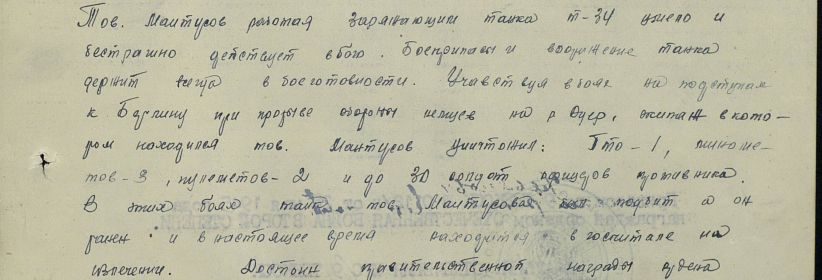 Тов. Мантусов работая заряжающим танка т-34 умело и
бестрашно действует в бою. Боеприпасы и вооружение танка
держит всегда в боеготовности. Учавствуя в боях на подступах
к Берлину при прорыве обороны немцев на р Одер, экипаж в кото-
ром находился тов. Мантусов уничтожил: Пто-1, миноме-
тов-3, пулеметов-2 и до 30 солдат офицеров противника.
В этих боях танк тов. Мантусова был подбит а он
ранен и в настоящее время находится в госпитале на
излечении. Достоин правительственной награды ордена